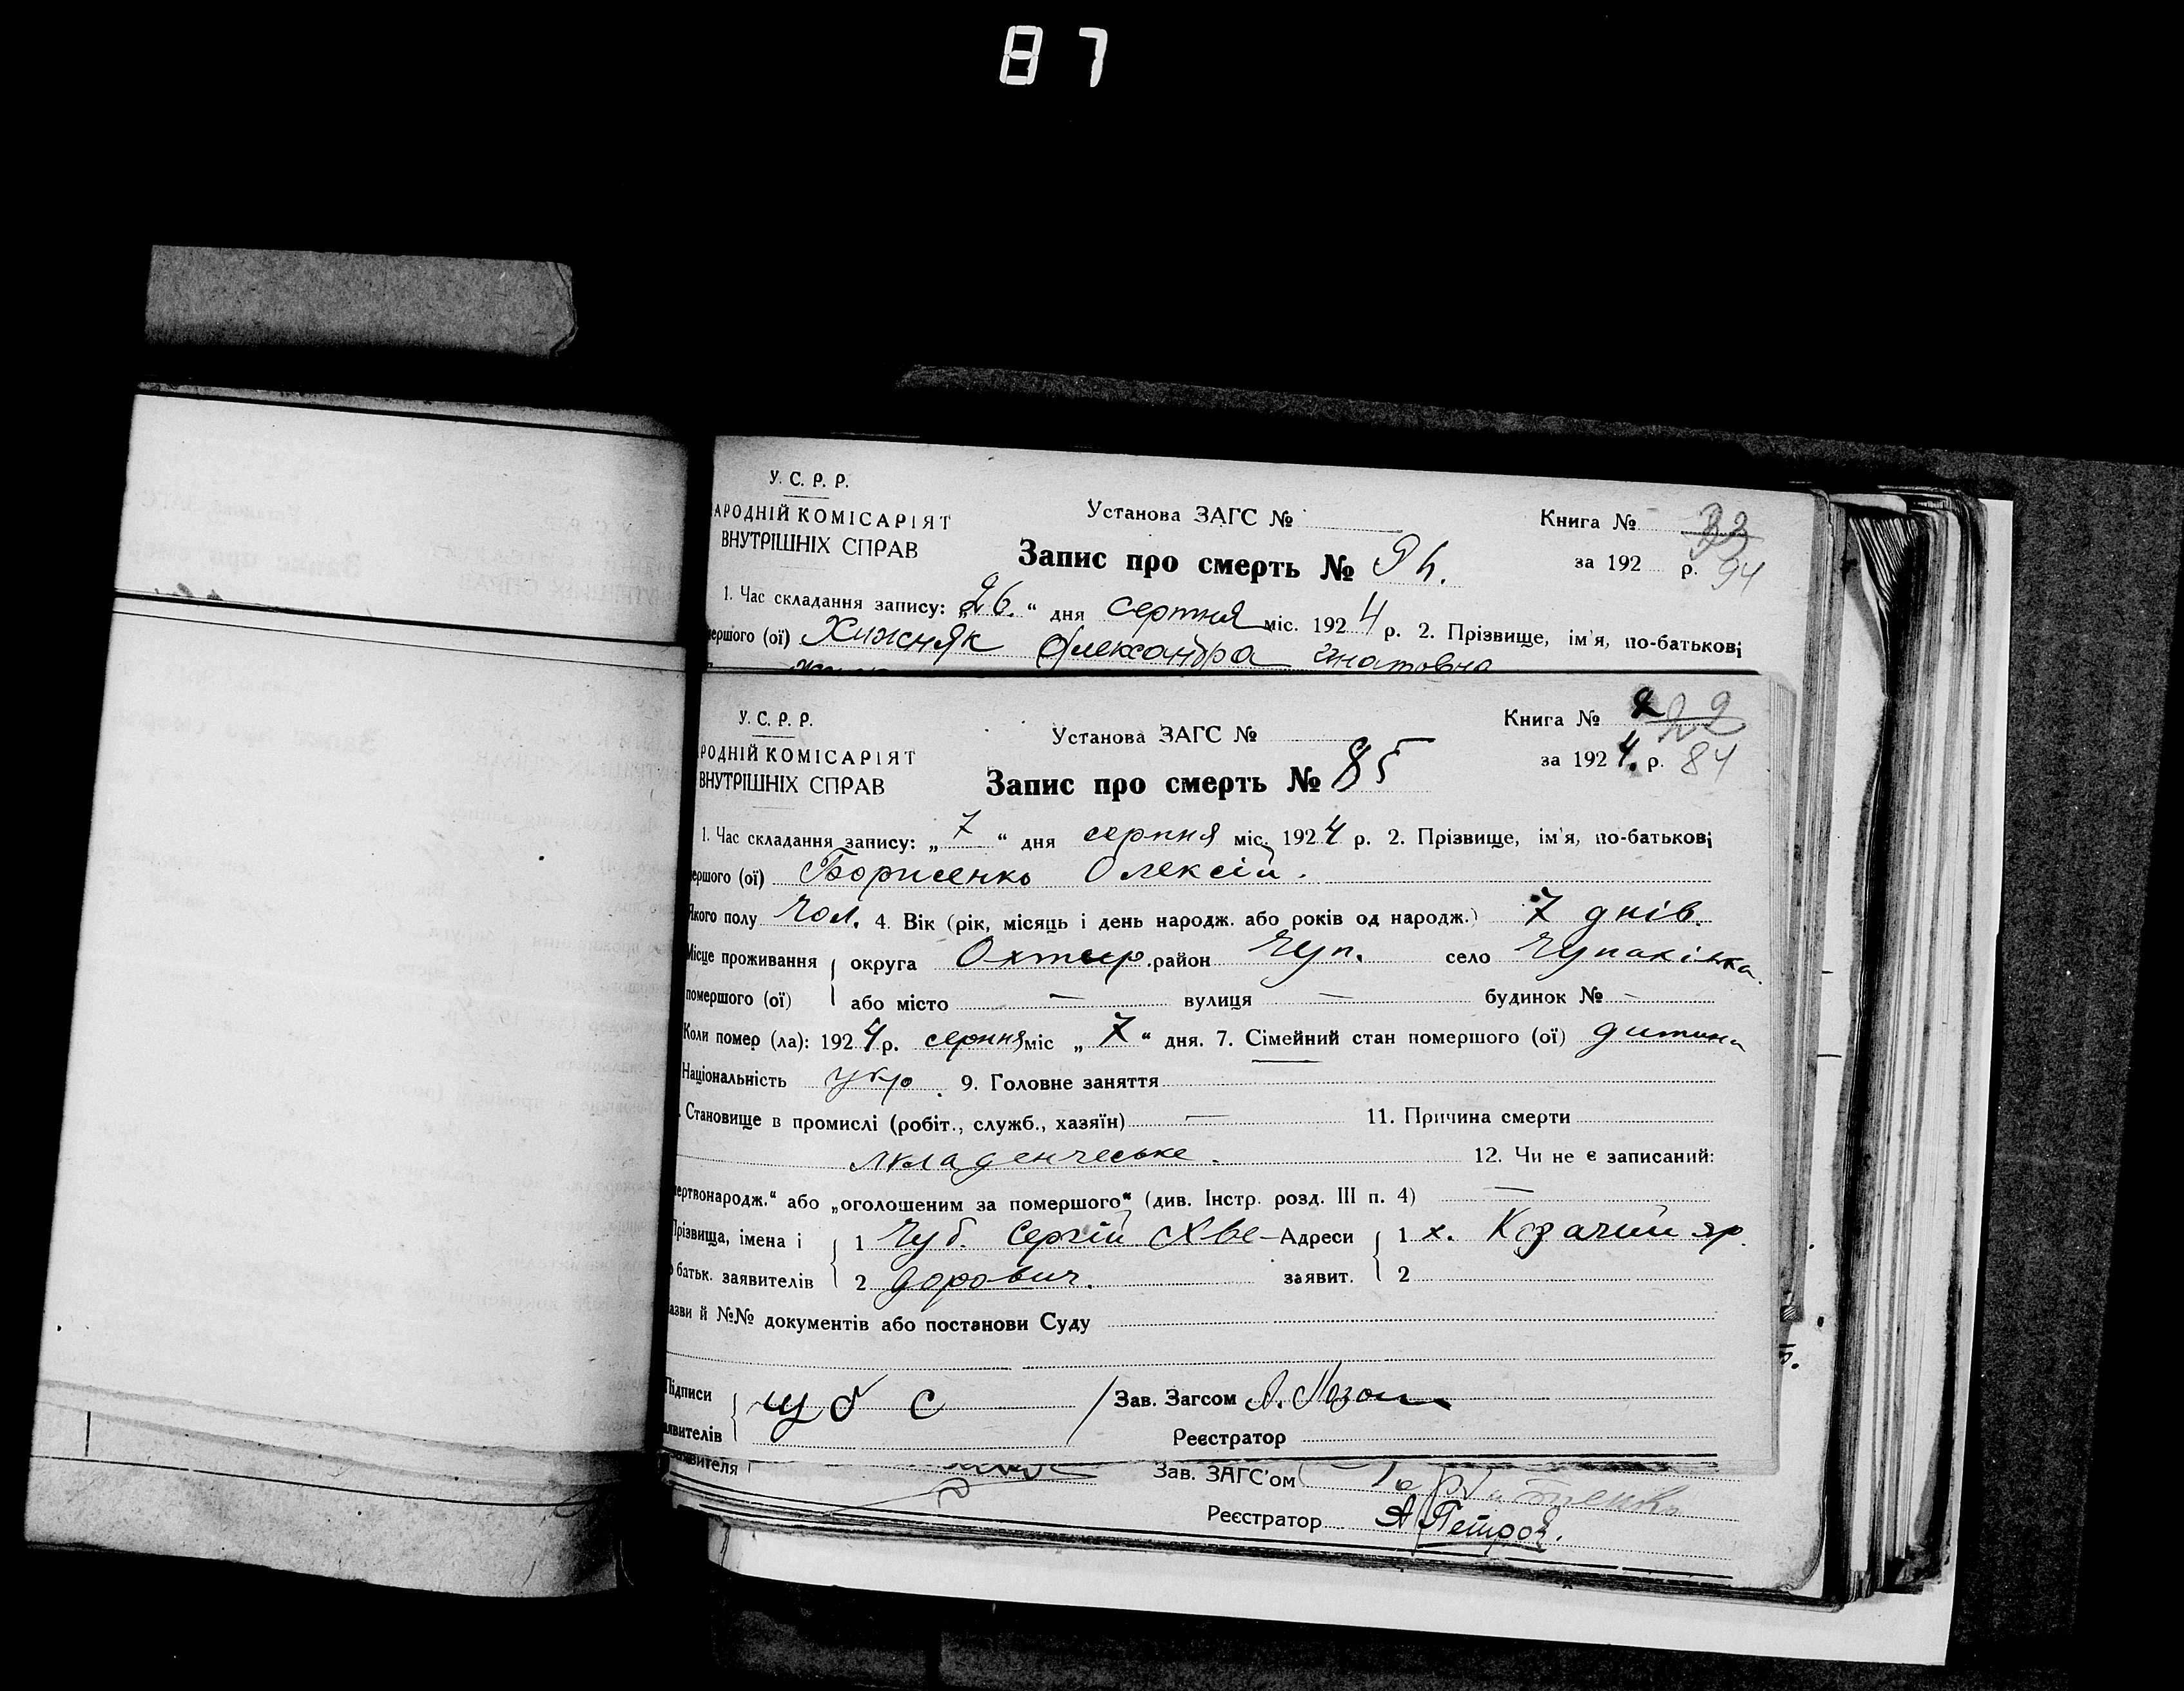 87
У. С. Р. Р.
АРОДНІЙ КОМІСАРІЯТ
ВНУТРІШНІХ СПРАВ
Установа ЗАГС №
Книга №
Запис про смерть № 94.
за 192 р. 94
1. Час складання запису: „26.“ дня серпня міс. 1924 р. 2. Прізвище, ім'я, по-батькові
ершого (ої) Хижняк Олександра Гнатовна
У. С. Р. Р.
РОДНІЙ КОМІСАРІЯТ
ВНУТРІШНІХ СПРАВ
Установа ЗАГС №
Книга № 22
Запис про смерть № 85
за 1924. р. 84
1. Час складання запису: „7“ дня серпня міс. 1924 р. 2. Прізвище, ім'я, по-батькові
ершого (ої) Борисенко Олексій.
Якого полу Чол. 4. Вік (рік, місяць і день народж. або років од народж.) 7 днів.
Місце проживання округа Охтир. район Чуп. село Чупахівка.
помершого (ої) або місто — вулиця — будинок № —
Коли помер (ла): 1924 р. серпня міс „7“ дня. 7. Сімейний стан помершого (ої) дитина
Національність укр. 9. Головне заняття —
. Становище в промислі (робіт., служб., хазяїн) — 11. Причина смерти
младенческе. 12. Чи не є записаний:
ертвонародж.“ або „оголошеним за помершого“ (див. Інстр. розд. III п. 4) —
Прізвища, імена і 1 Чуб. Сергій Хве- Адреси 1 х. Козачий яр.
о батьк. заявителів 2 дорович. заявит. 2
азви й №№ документів або постанови Суду
Підписи Чуб С Зав. Загсом А. Мозо
аявителів Реєстратор
заявителя Зав. ЗАГС'ом
Реєстратор А Петров.